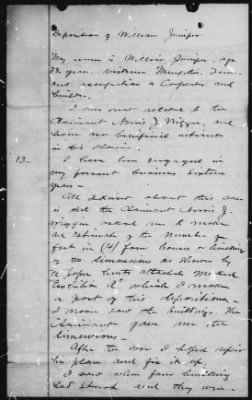 Deposition of William Juniper
My name is William Juniper, age
33 years, residence Memphis, Tenn
and occupation a Carpenter and
builder.
I am not related to the
Claimant Norris J. Wiggin, and
have no beneficial interest
in his claim.
13 -
I have been engaged in
my present business sixteen
years -
All I know about this case
is that the Claimant Norris J.
Wiggin asked me to make
an estimate of the number of
feet in (4) four houses or buildings
of the dimensions as shown by
a paper hereto attached marked
Exhibit "A" which I make
a part of this deposition -
I never saw the buildings. The
Claimant gave me the
dimensions -
After the war I helped
his place and fix it up,
I saw where four buildings
had stood and they were -